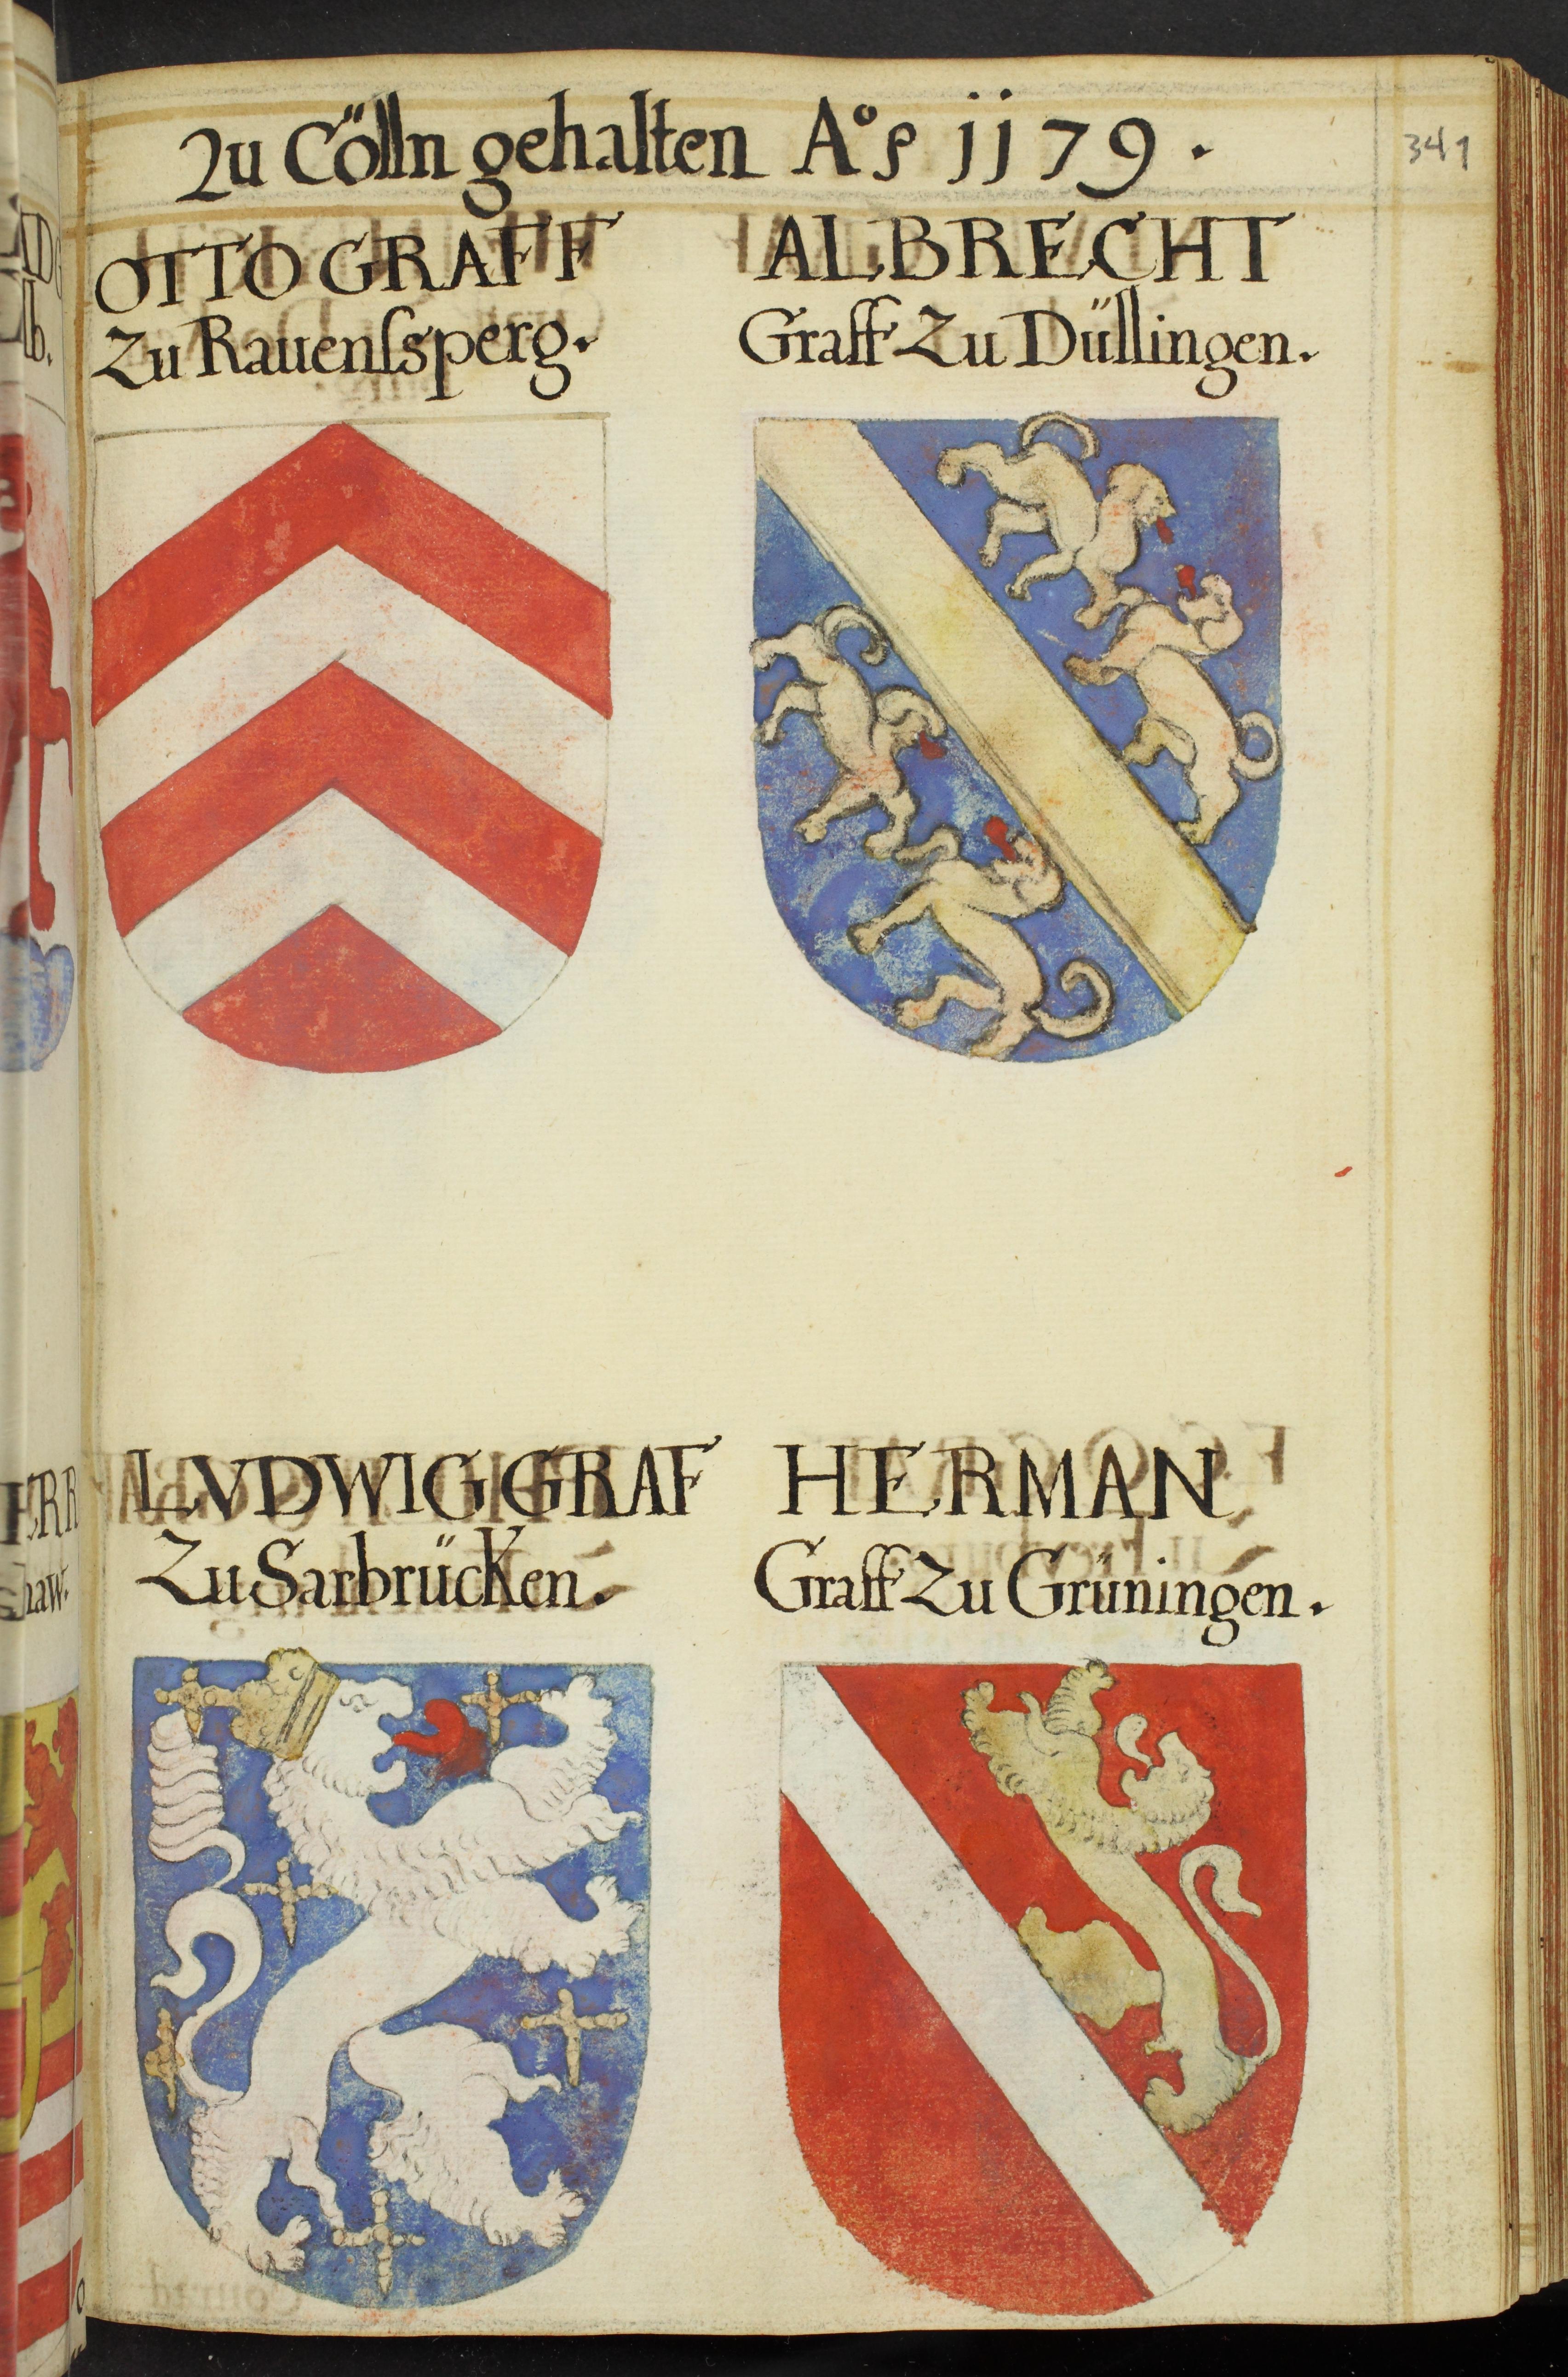 Zu Cölln gehalten Aº 1179.
341
OTTO GRAFF
Zu Rauenſsperg.
ALBRECHT
Graff Zu Düllingen.
LVDWIG GRAF
Zu Sarbrücken.
HERMAN
Graff Zu Grüningen.